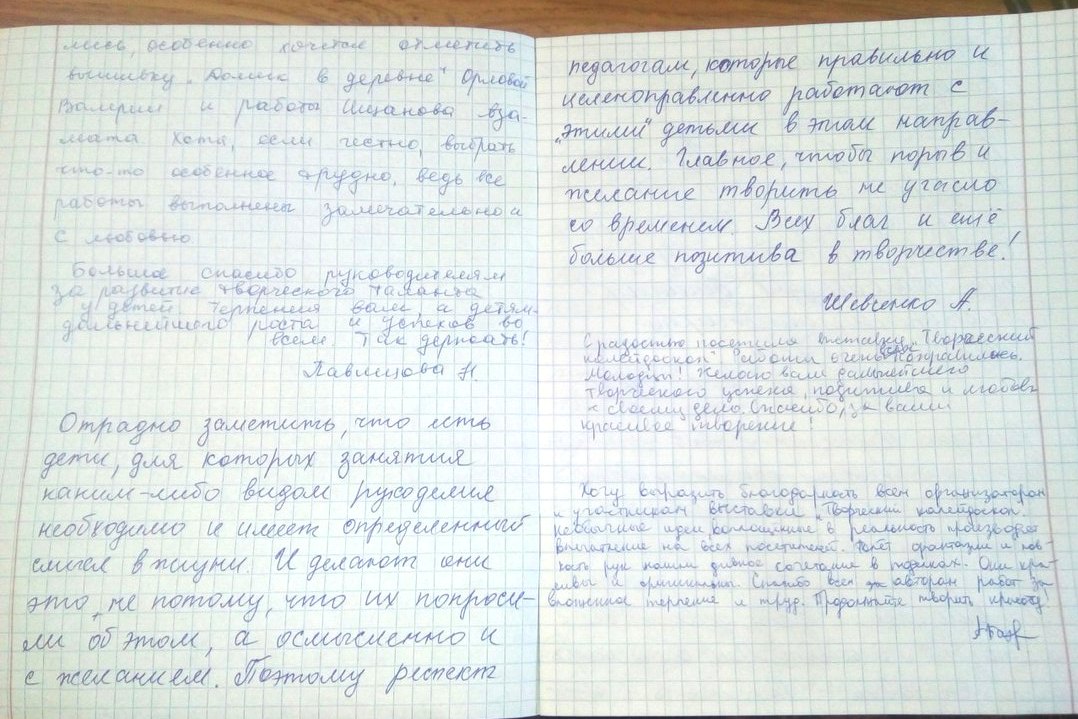 лись, особенно хочется отметить
вышивку „Домик в деревне" Орловой
Валерии и работы Ищанова
мата Хотя, если честно, выбрать
что-то особенное трудно, ведь все
работы выполнены замечательно и
с любовью
Большое спасибо руководителям
за развитие творческого таланта
у детей Терпения вам, а детям-
дальнейшего роста и успехов во
всем Так держать!
Павлицова Н.
Отрадно заметить, что есть
дети, для которых занятия
каким-либо видом рукоделия
необходимо и имеет определенный
смысл в жизни. И делают они
это, не потому, что их попроси-
ли об этом, а осмысленно и
с желанием. Поэтому респект
педагогам, которые правильно и
целеноправленно работают с
„этими" детьми в этом направ-
лении. Главное, чтобы порыв и
желание творить не угасло
со временем. Всех благ и ещё
больше позитива в творчестве!
Шевченко А.
С радостью посетила выставку „Творческий
калейдоскоп" очень понравились.
Молодцы! Желаю вам дальнейшего
творческого успеха, позитива и любви
к своему делу. Спасибо, за ваши
красивое творение!
Хочу выразить благодарность всем организаторам
и участникам выставки „Творческий калейдоскоп.
Необычные идеи, воплощенные в реальность производят
впечатление на всех посетителей. Полёт фантазии и лов-
кость рук нашли дивное сочетание в поделках. Они кра-
сивы и оригинальны. Спасибо всем авторам работ за
вложенное терпение и труд. Продолжайте творить красоту!